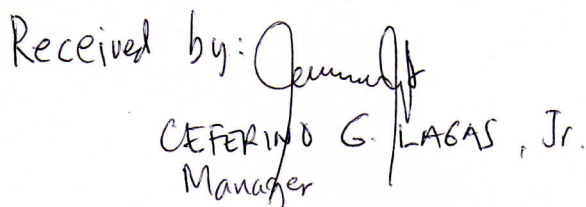 Received by:
CEFERINO G. LAGAS, Jr.
Manager